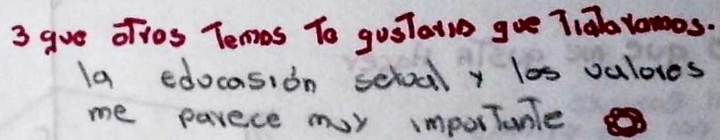 3 que otros Temas Te gustario que Tratáramos.
la educasión sexual y los valores
me parece muy importante